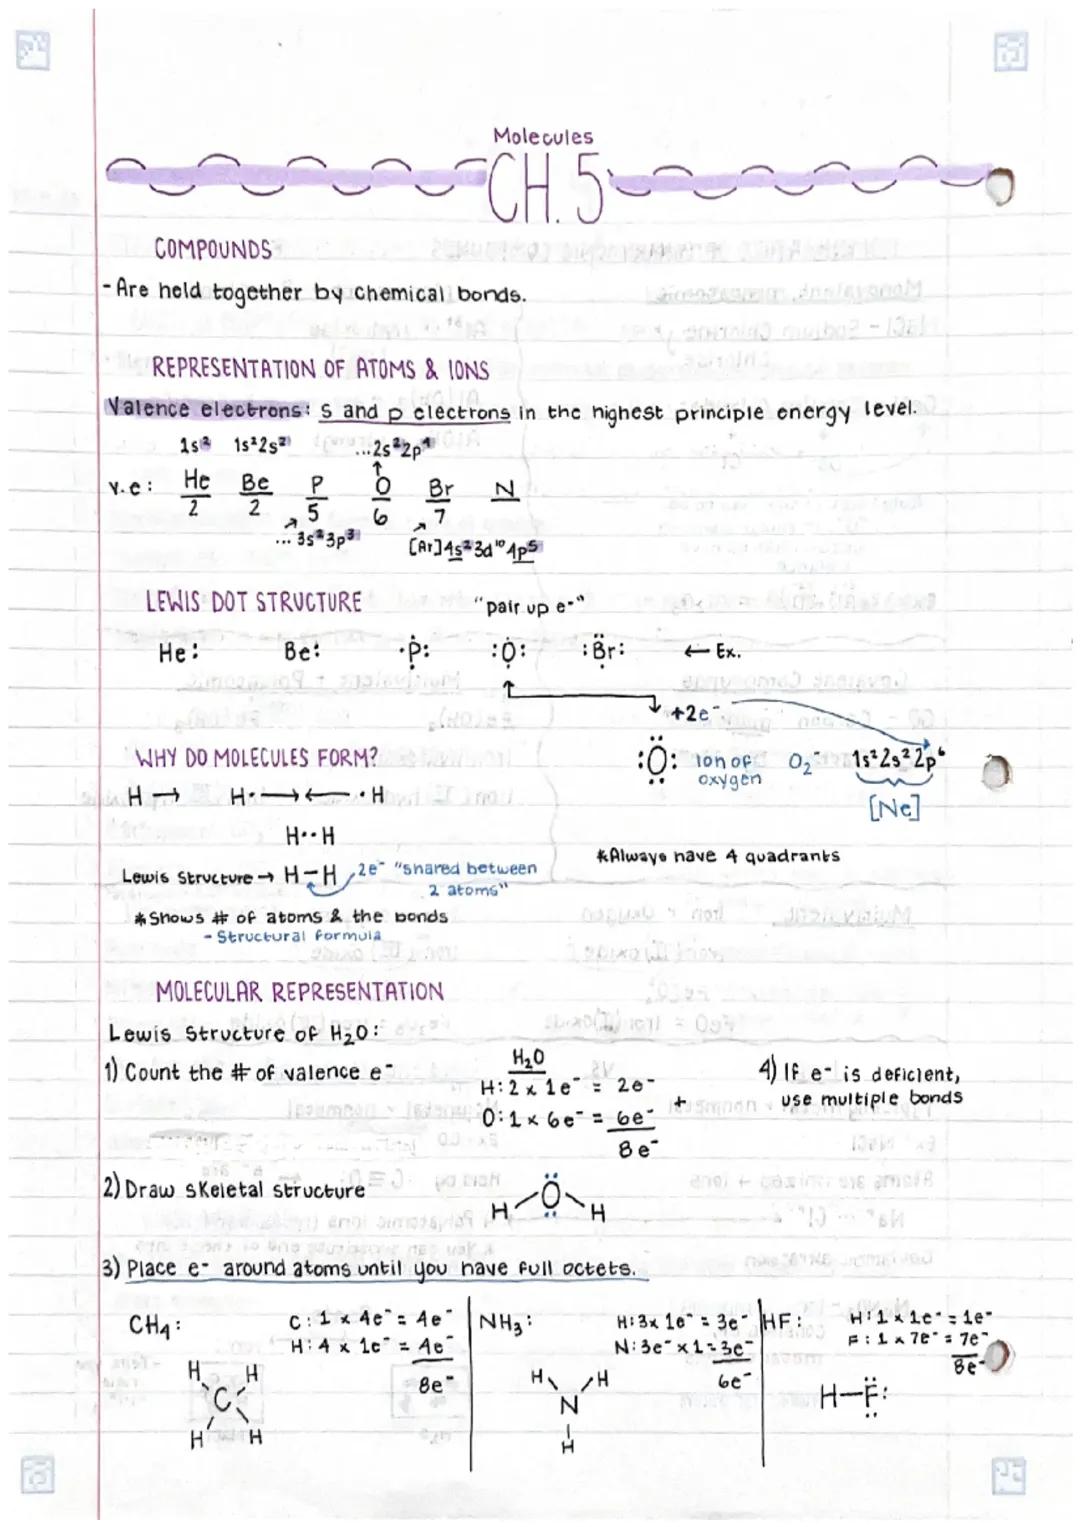 Molecules
CH. 5
COMPOUNDS
- Are held together by chemical bonds.
REPRESENTATION OF ATOMS & IONS
Valence electrons: s and p electrons in the highest principle energy level.
1s² 1s²2s² ...2s²2p⁴
v.e: He Be P O Br N
2 2 5 6 7
...3s²3p³ [Ar]4s²3d¹⁰4p⁵
LEWIS DOT STRUCTURE "pair up e-"
He: Be: ·P: :O: :Br: ← Ex.
+2e⁻
WHY DO MOLECULES FORM? :O: ion of oxygen O₂⁻ 1s²2s²2p⁶
[Ne]
H → H·→ ←·H
H··H
*Always have 4 quadrants
Lewis Structure → H-H 2e⁻ "shared between
2 atoms"
*Shows # of atoms & the bonds
- Structural formula
MOLECULAR REPRESENTATION
Lewis Structure of H₂O:
1) Count the # of valence e⁻
H₂O
H: 2 x 1e⁻ = 2e⁻
O: 1 x 6e⁻ = 6e⁻ +
8e⁻
4) If e⁻ is deficient,
use multiple bonds
2) Draw skeletal structure
H-O-H
3) Place e⁻ around atoms until you have full octets.
CH₄: C: 1 x 4e⁻ = 4e⁻
H: 4 x 1e⁻ = 4e⁻
8e⁻
H H
C
H H
NH₃: H: 3x 1e⁻ = 3e⁻
N: 3e⁻ x1 = 3e⁻
6e⁻
H H
N
H
HF: H: 1 x 1e⁻ = 1e⁻
F: 1 x 7e⁻ = 7e⁻
8e⁻
H-F: